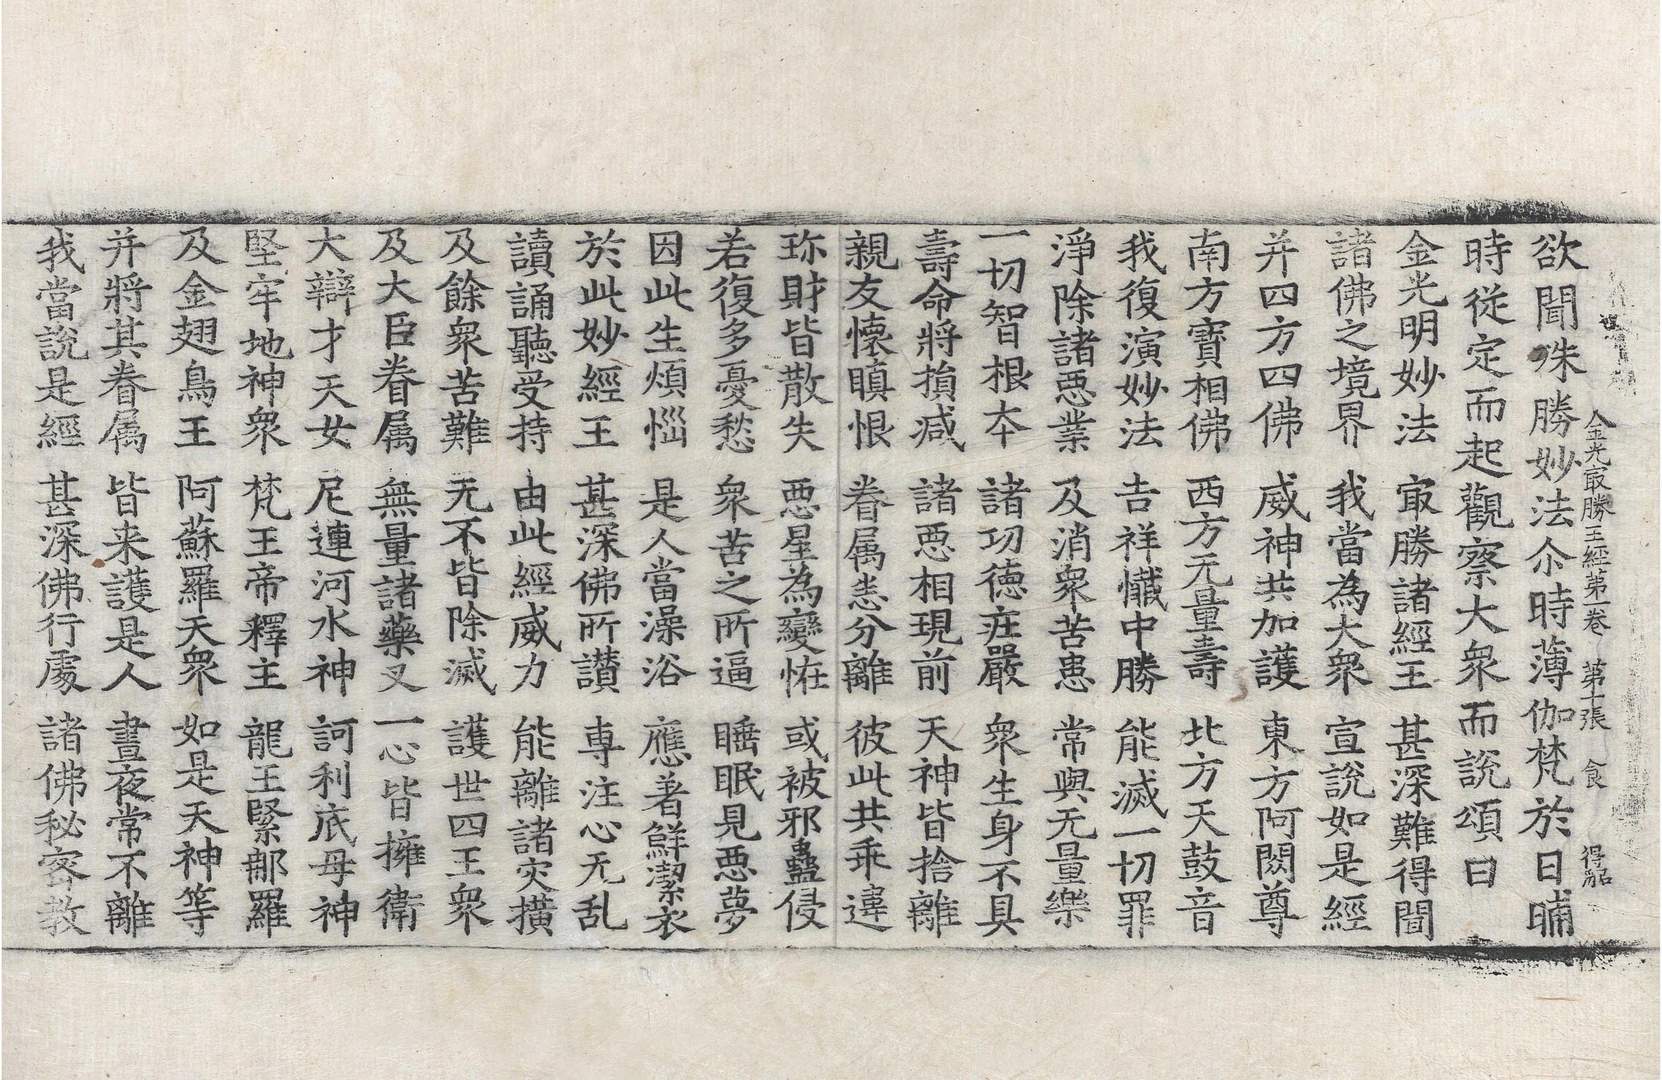 金光㝡勝王經第一卷 第十張 食 得㽵
欲聞殊勝妙法尒時薄伽梵於日晡
時從定而起觀察大衆而說頌曰
金光明妙法 㝡勝諸經王 甚深難得聞
諸佛之境界 我當為大衆 宣說如是經
并四方四佛 威神共加護 東方阿閦尊
南方寶相佛 西方无量壽 北方天鼓音
我復演妙法 吉祥懺中勝 能滅一切罪
淨除諸惡業 及消衆苦患 常與无量樂
一切智根本 諸功德莊嚴 衆生身不具
壽命將損減 諸惡相現前 天神皆捨離
親友懷瞋恨 眷属悉分離 彼此共乖違
珎財皆散失 惡星為變恠 或被邪蠱侵
若復多憂愁 衆苦之所逼 睡眠見惡夢
因此生煩惱 是人當澡浴 應著鮮潔衣
於此妙經王 甚深佛所讃 專注心无乱
讀誦聽受持 由此經威力 能離諸灾撗
及餘衆苦難 无不皆除滅 護世四王衆
及大臣眷属 無量諸藥叉 一心皆擁衛
大辯才天女 尼連河水神 訶利底母神
堅牢地神衆 梵王帝釋主 龍王緊那羅
及金翅鳥王 阿蘇羅天衆 如是天神等
并將其眷属 皆来護是人 晝夜常不離
我當說是經 甚深佛行處 諸佛秘密教